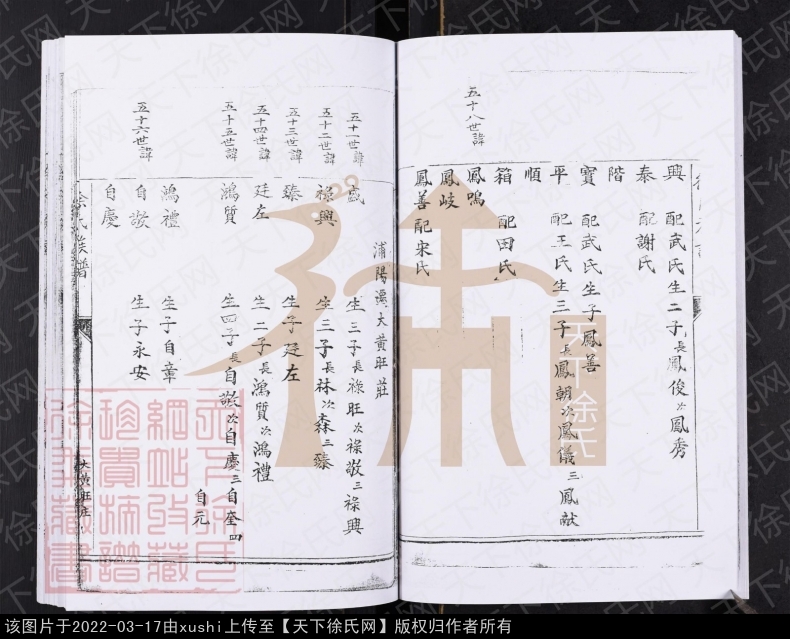 興 配武氏生二子長鳳俊次鳳秀
泰 配謝氏
階
寶 配武氏生子鳳善
平 配王氏生三子長鳳朝次鳳儀三鳳献
順
箱 配田氏
五十八世諱
鳳鳴
鳳岐
鳳善配宋氏
浦陽 大黄旺莊
五十一世諱 盛 生三子長祿旺次祿敬三祿興
五十二世諱 祿興 生三子長林次森三臻
五十三世諱 臻 生子廷左
五十四世諱 廷左 生二子長鴻質次鴻禮
五十五世諱 鴻質 生四子長自敬次自慶三自奎四
自元
鴻禮 生子自章
五十六世諱 自敬 生子永安
自慶
徐氏族譜
大黄旺庄
天下徐氏网
天下徐氏
该图片于2022-03-17由xushi上传至【天下徐氏网】版权归作者所有